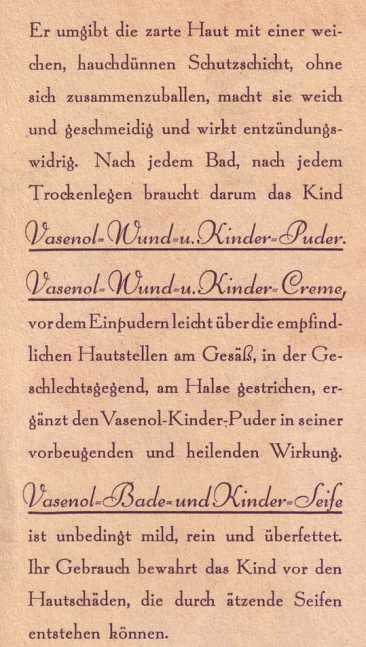 Er umgibt die zarte Haut mit einer wei-
chen, hauchdünnen Schutzschicht, ohne
sich zusammenzuballen, macht sie weich
und geschmeidig und wirkt entzündungs-
widrig. Nach jedem Bad, nach jedem
Trockenlegen braucht darum das Kind
Vasenol-Wund-u. Kinder-Puder.
Vasenol-Wund-u. Kinder-Creme,
vor dem Einpudern leicht über die empfind-
lichen Hautstellen am Gesäß, in der Ge-
schlechtsgegend, am Halse gestrichen, er-
gänzt den Vasenol-Kinder-Puder in seiner
vorbeugenden und heilenden Wirkung.
Vasenol-Bade-und Kinder-Seife
ist unbedingt mild, rein und überfettet.
Ihr Gebrauch bewahrt das Kind vor den
Hautschäden, die durch ätzende Seifen
entstehen können.